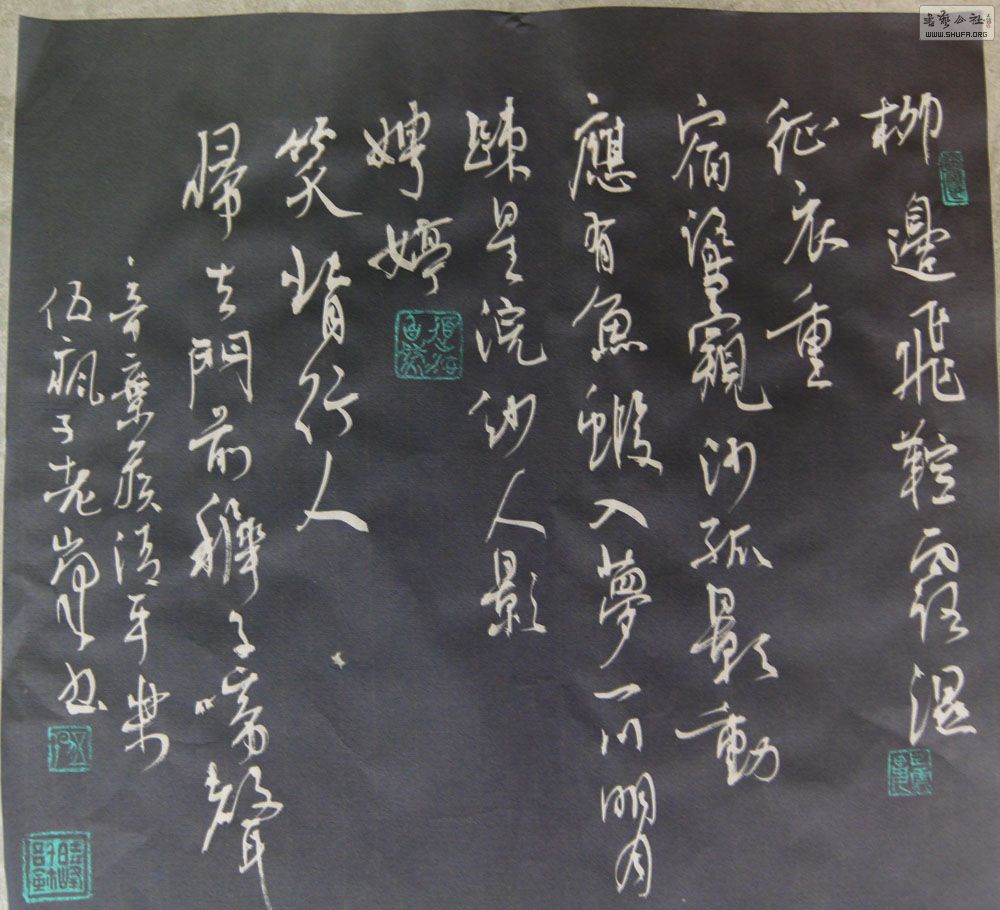 書藝公社
WWW.SHUFA.ORG
柳邊飛鞚露湿
征衣重
宿鷺窺沙孤影動
應有魚蝦入夢一川明月
疎星浣紗人影
娉婷
笑背行人
歸去門前穉子啼聲
辛棄疾清平樂
伍瘋子老书